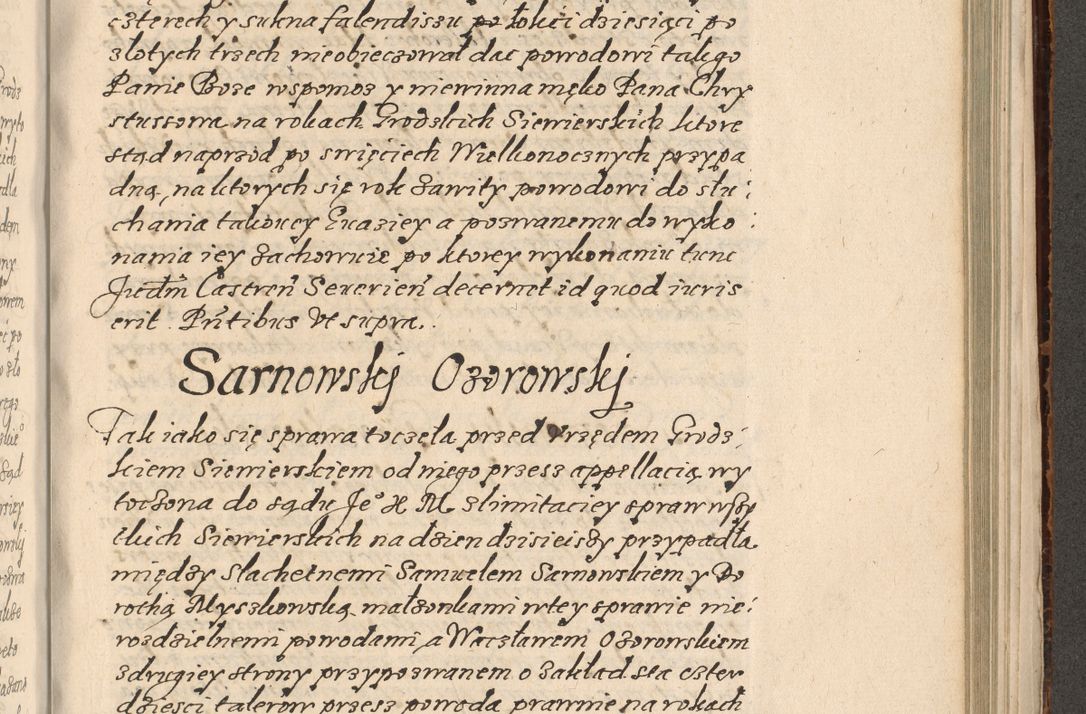 czterech y sukna falendiszu po łokci dziesiąci po
złotych trzech nieobieczował dac powodowi takgo
Panie Boze wspomoz y niewinna męko Pana Chry
stussowa na rokach Grodzkich Siewierskich ktore
stąd naprzod po swięciech Wielkonocznych przypa
dną, na ktorych się rok zawity powodowi do słu:
chania takowey Euaziey a pozwanemu do wyko:
nania iey zachowuie po ktorey wykonaniu tunc
Judm Castren Seuerien decernet id quod iuris
erit. Pntibus Vt supra.
Sarnowskij Ozorowskij
Tak iako się sprawa toczeła przed Vrzędem Grodz:
kiem Siewierskiem od niego przesz appellacią wy
toczona do sądu Jeo X M zlimitaciey spraw wszy
tkich Siewierskich na dzien dzisieiszy przypadła
między Slachetnemi Samuelem Sarnowskiem y Do
rothą Myszkowską małzonkami wtey sprawie nie:
rozdzielnemi powodami, a Waczławem Ozorowskiem
zdrugiey strony przypozwanem o zakład sta czter
dziesci talerow przesz powoda prawnie na rokach